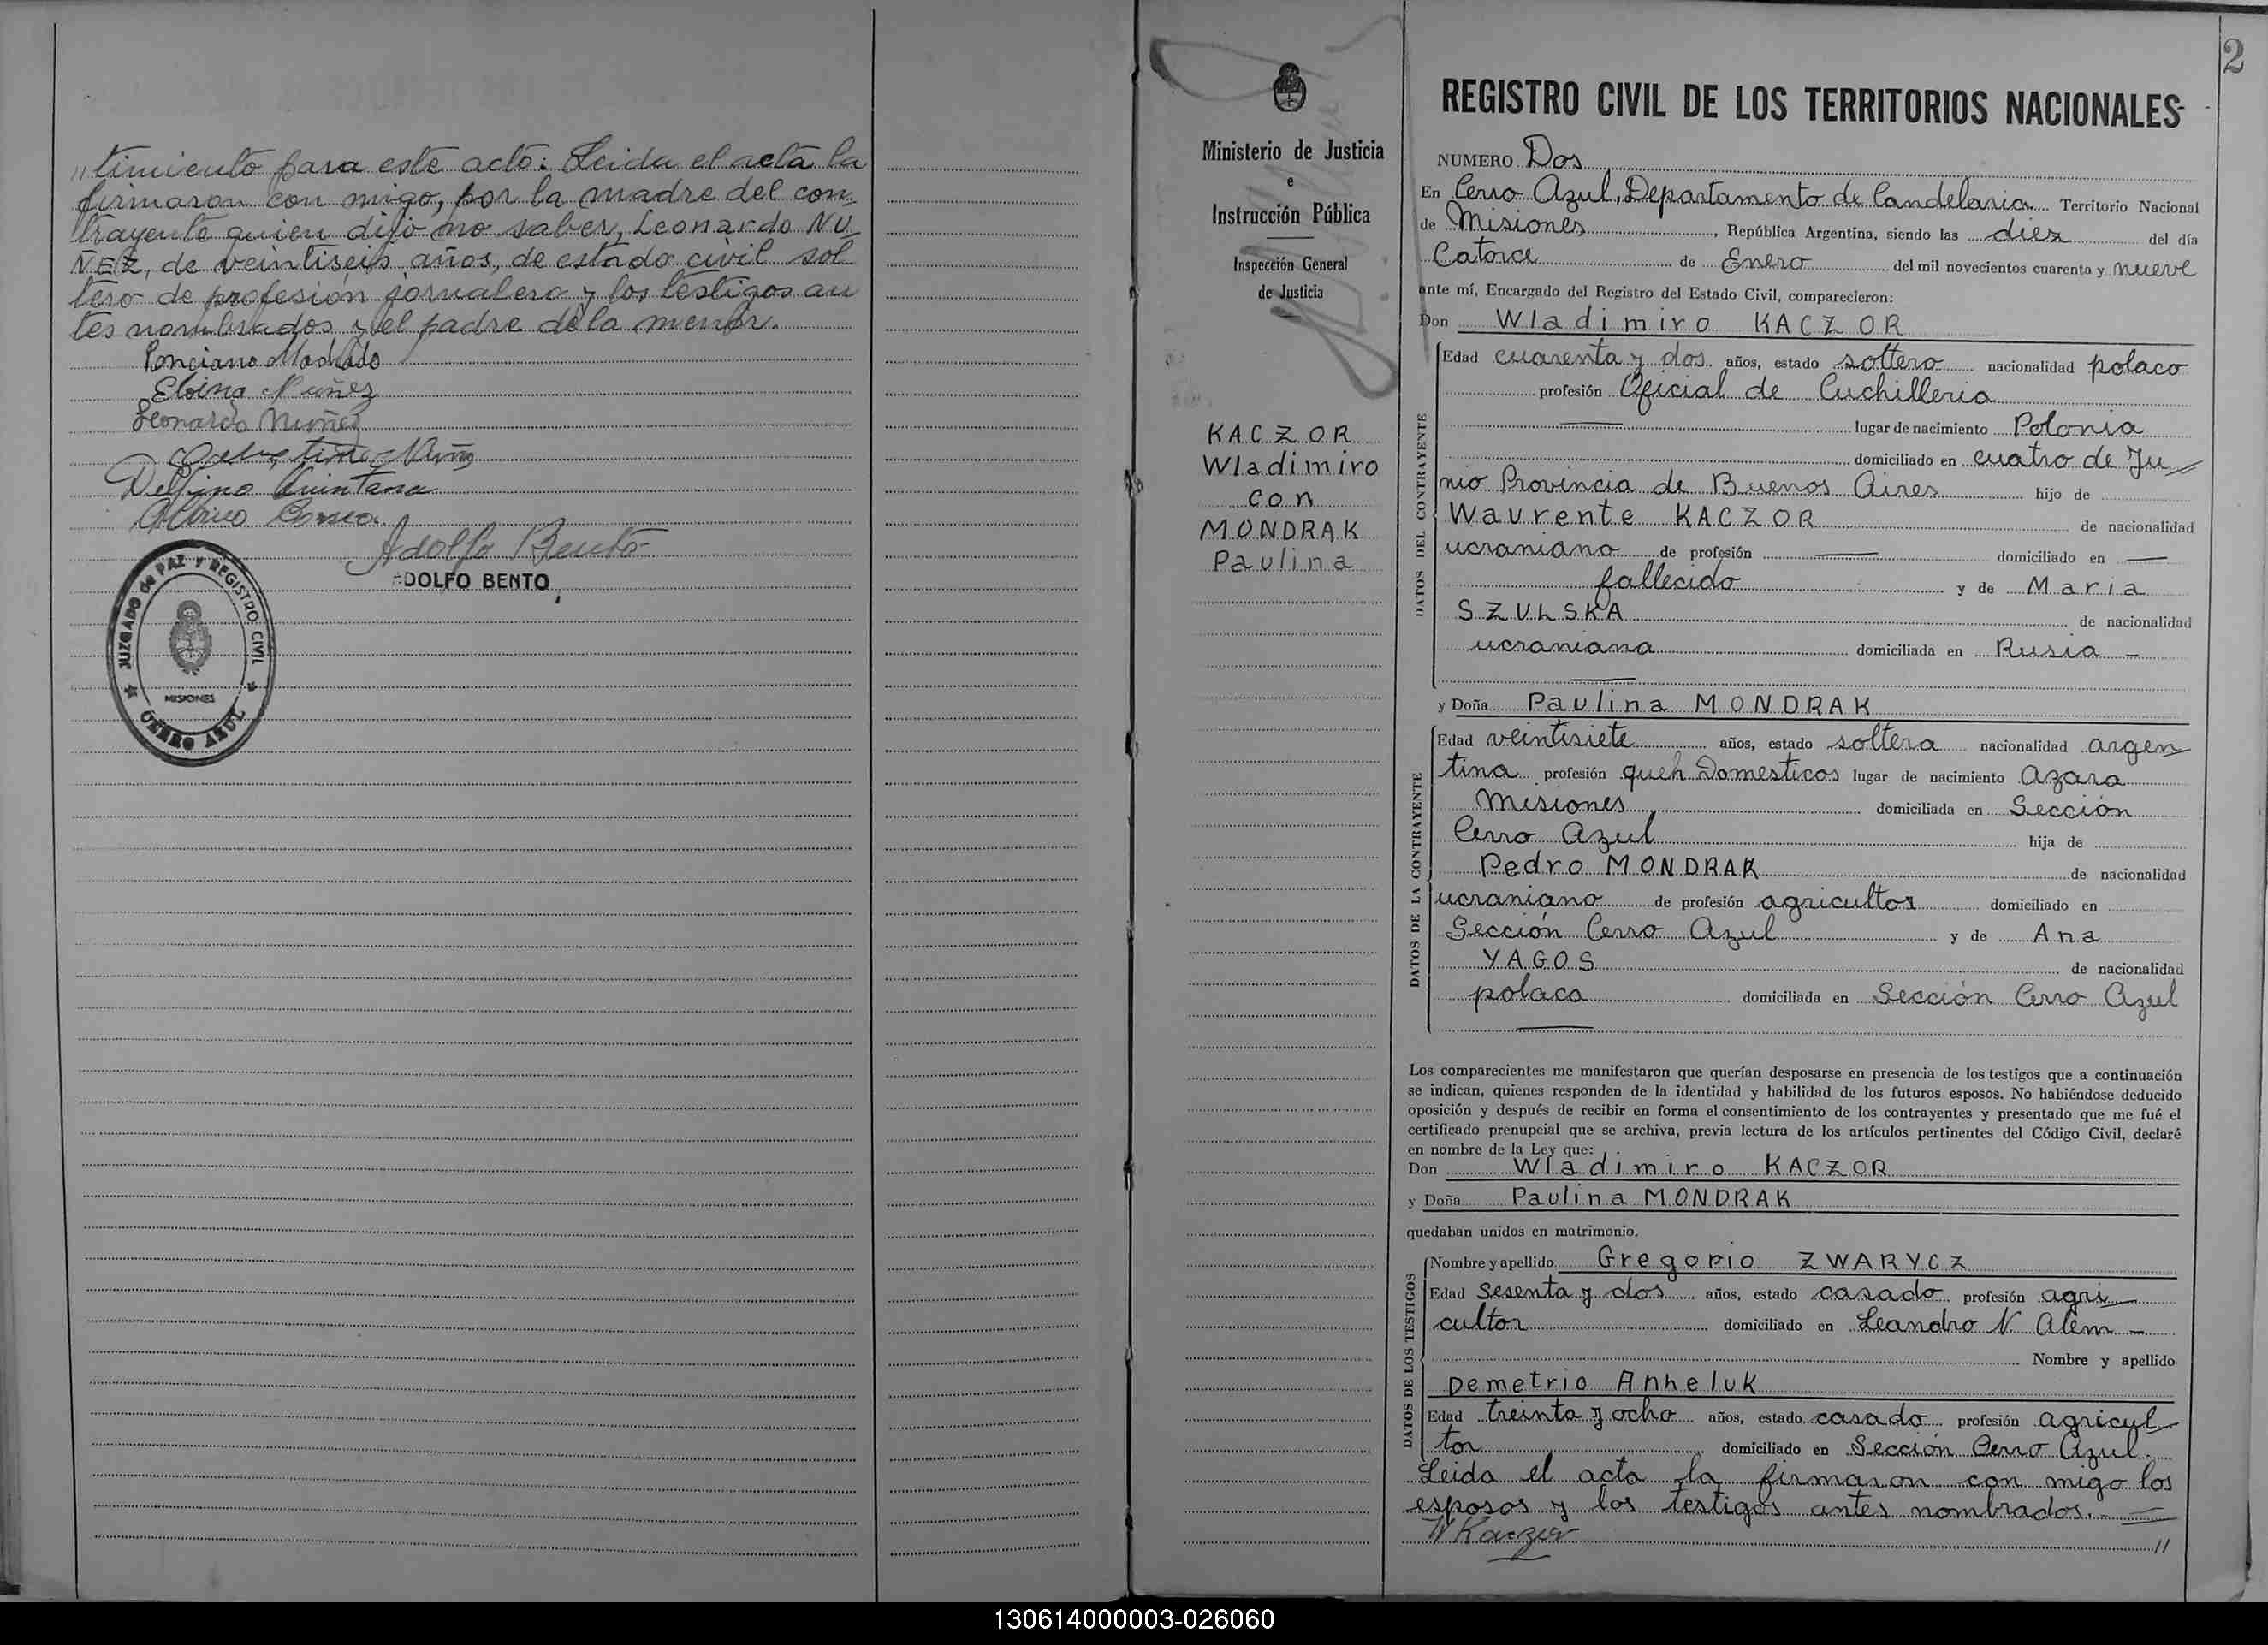 "timiento para este acto: Leida el acta la
firmaron con migo, por la madre del con-
trayente quien dijo no saber, Leonardo NU
ÑEZ, de veintiseis años, de estado civil sol
tero de profesión jornalero y los testigos an
tes nombrados y el padre de la menor.
Ponciano Machado
Elvina Nuñez
Leonardo Nuñez
Delfino Quintana
Adolfo Bento
ADOLFO BENTO
JUZGADO de PAZ Y REGISTRO CIVIL
MISIONES
CERRO AZUL
2
Ministerio de Justicia
e
Instrucción Pública
Inspección General
de Justicia
KACZOR
Wladimiro
con
MONDRAK
Paulina
REGISTRO CIVIL DE LOS TERRITORIOS NACIONALES
NUMERO Dos
En Cerro Azul, Departamento de Candelaria Territorio Nacional
de Misiones, República Argentina, siendo las diez del día
Catorce de Enero del mil novecientos cuarenta y nueve
ante mí, Encargado del Registro del Estado Civil, comparecieron:
Don Wladimiro KACZOR
DATOS DEL CONTRAYENTE
Edad cuarenta y dos años, estado soltero nacionalidad polaco
profesión Oficial de Cuchilleria
lugar de nacimiento Polonia
domiciliado en cuatro de Ju
nio Provincia de Buenos Aires hijo de
Waurente KACZOR de nacionalidad
ucraniano de profesión — domiciliado en —
fallecido y de Maria
SZULSKA de nacionalidad
ucraniana domiciliada en Rusia —
y Doña Paulina MONDRAK
DATOS DE LA CONTRAYENTE
Edad veintisiete años, estado soltera nacionalidad argen
tina profesión queh. Domesticos lugar de nacimiento Azara
Misiones domiciliada en Sección
Cerro Azul hija de
Pedro MONDRAK de nacionalidad
ucraniano de profesión agricultor domiciliado en
Sección Cerro Azul y de Ana
YAGOS de nacionalidad
polaca domiciliada en Sección Cerro Azul
Los comparecientes me manifestaron que querían desposarse en presencia de los testigos que a continuación
se indican, quienes responden de la identidad y habilidad de los futuros esposos. No habiéndose deducido
oposición y después de recibir en forma el consentimiento de los contrayentes y presentado que me fué el
certificado prenupcial que se archiva, previa lectura de los artículos pertinentes del Código Civil, declaré
en nombre de la Ley que:
Don Wladimiro KACZOR
y Doña Paulina MONDRAK
quedaban unidos en matrimonio.
DATOS DE LOS TESTIGOS
Nombre y apellido Gregorio ZWARYCZ
Edad Sesenta y dos años, estado casado profesión agri
cultor domiciliado en Leandro N. Alem —
Nombre y apellido
Demetrio Anheluk
Edad treinta y ocho años, estado casado profesión agricul
tor domiciliado en Sección Cerro Azul.
Leida el acta la firmaron con migo los
esposos y los testigos antes nombrados. —
W Kaczor
"
130614000003-026060